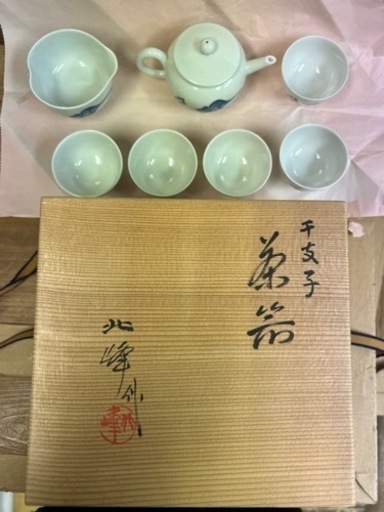 干支子
茶器
北峰作